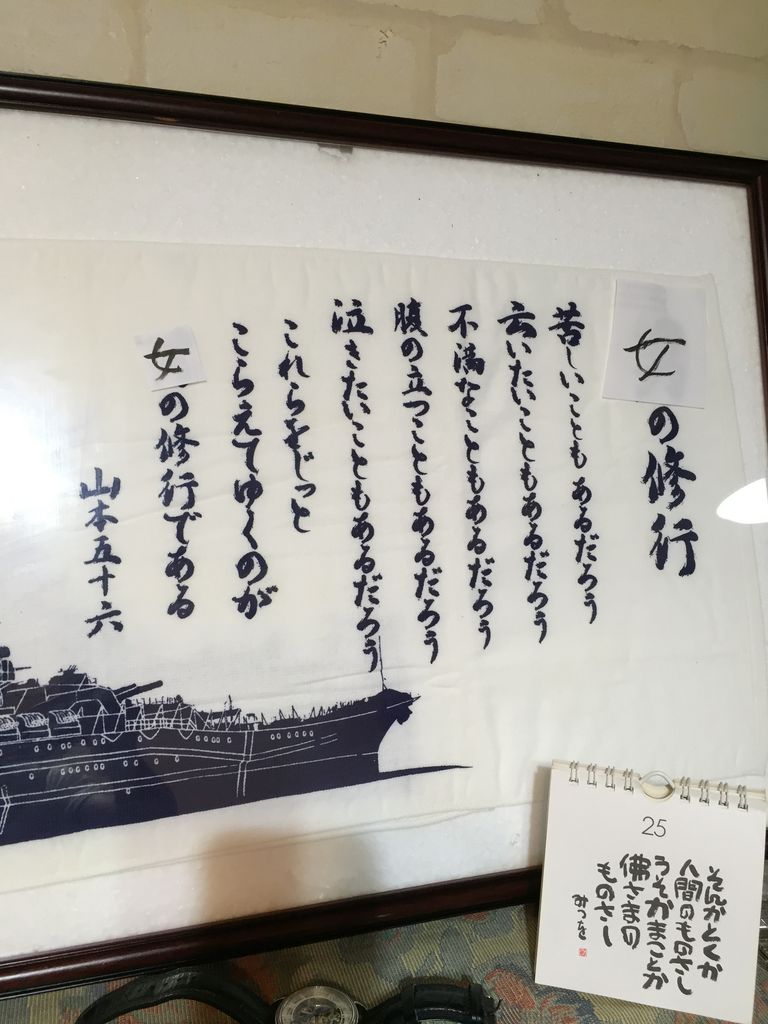 女の修行
苦しいこともあるだろう
云いたいこともあるだろう
不満なこともあるだろう
腹の立つこともあるだろう
泣きたいこともあるだろう
これらをじっと
こらえてゆくのが
女の修行である
山本五十六
25
そんかとくか
人間のものさし
うそかまことか
佛さまの
ものさし
みつを